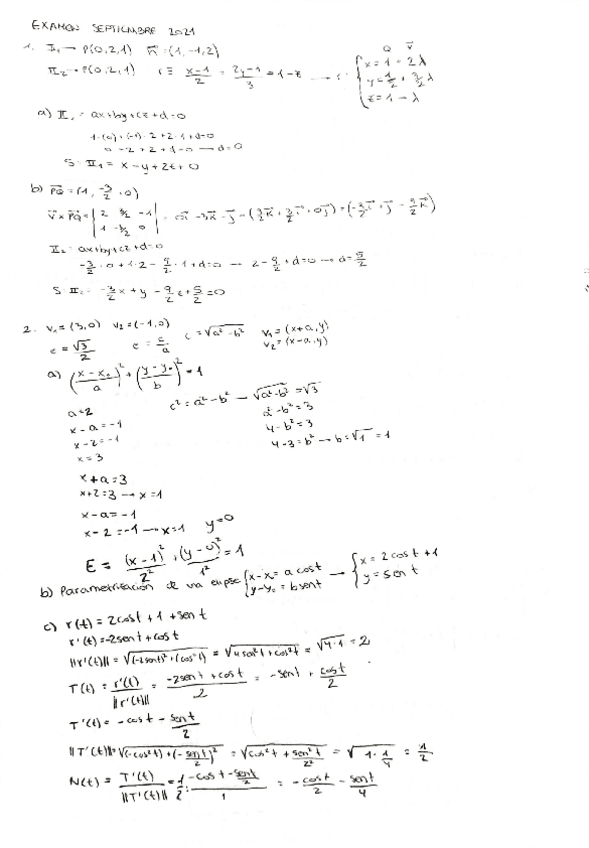 EXAMEN SEPTIEMBRE 2021
1. π₁ → P(0,2,1) n⃗ = (1,-1,2)
π₂ → P(0,2,1) r ≡ (x-1)/2 = (2y-1)/3 = 1-z → r: { x = 1 + 2λ
y = 1/2 + 3/2 λ
z = 1 - λ
Q v⃗
a) π₁ = ax+by+cz+d=0
1·(0)+(-1)·2+2·1+d=0
0-2+2+d=0 → d=0
S: π₁ = x-y+2z+0
b) PQ = (1, -3/2, 0)
V⃗ × PQ = | 2 3/2 -1 |
| 1 -3/2 0 |
= -3k⃗ - j⃗ - (3/2 k⃗ + 3/2 i⃗ + 0j⃗) = (-3/2 i⃗ + j⃗ - 9/2 k⃗)
π₂ = ax+by+cz+d=0
-3/2 · 0 + 1·2 - 9/2 · 1 + d=0 → 2 - 9/2 + d=0 → d = 5/2
S: π₂ = -3/2 x + y - 9/2 z + 5/2 = 0
2. v₁ = (3,0) v₂ = (-1,0)
e = √3/2 e = c/a c = √(a²-b²) v₁ = (x+a, y)
v₂ = (x-a, y)
a) ((x-x₀)/a)² + ((y-y₀)/b)² = 1
a=2
x-a=-1
x-2=-1
x=3
c² = a²-b² → √(a²-b²) = √3
a²-b²=3
4-b²=3
4-3=b² → b=√1=1
x+a=3
x+2=3 → x=1
x-a=-1
x-2=-1 → x=1 y=0
E = (x-1)²/2² + (y-0)²/1² = 1
b) Parametrización de una elipse { x-x₀ = a cos t → { x = 2 cos t + 1
y-y₀ = b sen t y = sen t
c) r(t) = 2cos t + 1 + sen t
r'(t) = -2sen t + cos t
||r'(t)|| = √((-2sen t)² + (cos² t)) = √(4sen² t + cos² t) = √(4·1) = 2
T(t) = r'(t)/||r'(t)|| = (-2sen t + cos t)/2 = -sen t + cos t/2
T'(t) = -cos t - sen t/2
||T'(t)|| = √((-cos² t) + (-sen t/2)²) = √(cos² t + sen² t/2²) = √(1·1/4) = 1/2
N(t) = T'(t)/||T'(t)|| = 1/2 · (-cos t - sen t/2)/1 = -cos t/2 - sen t/4